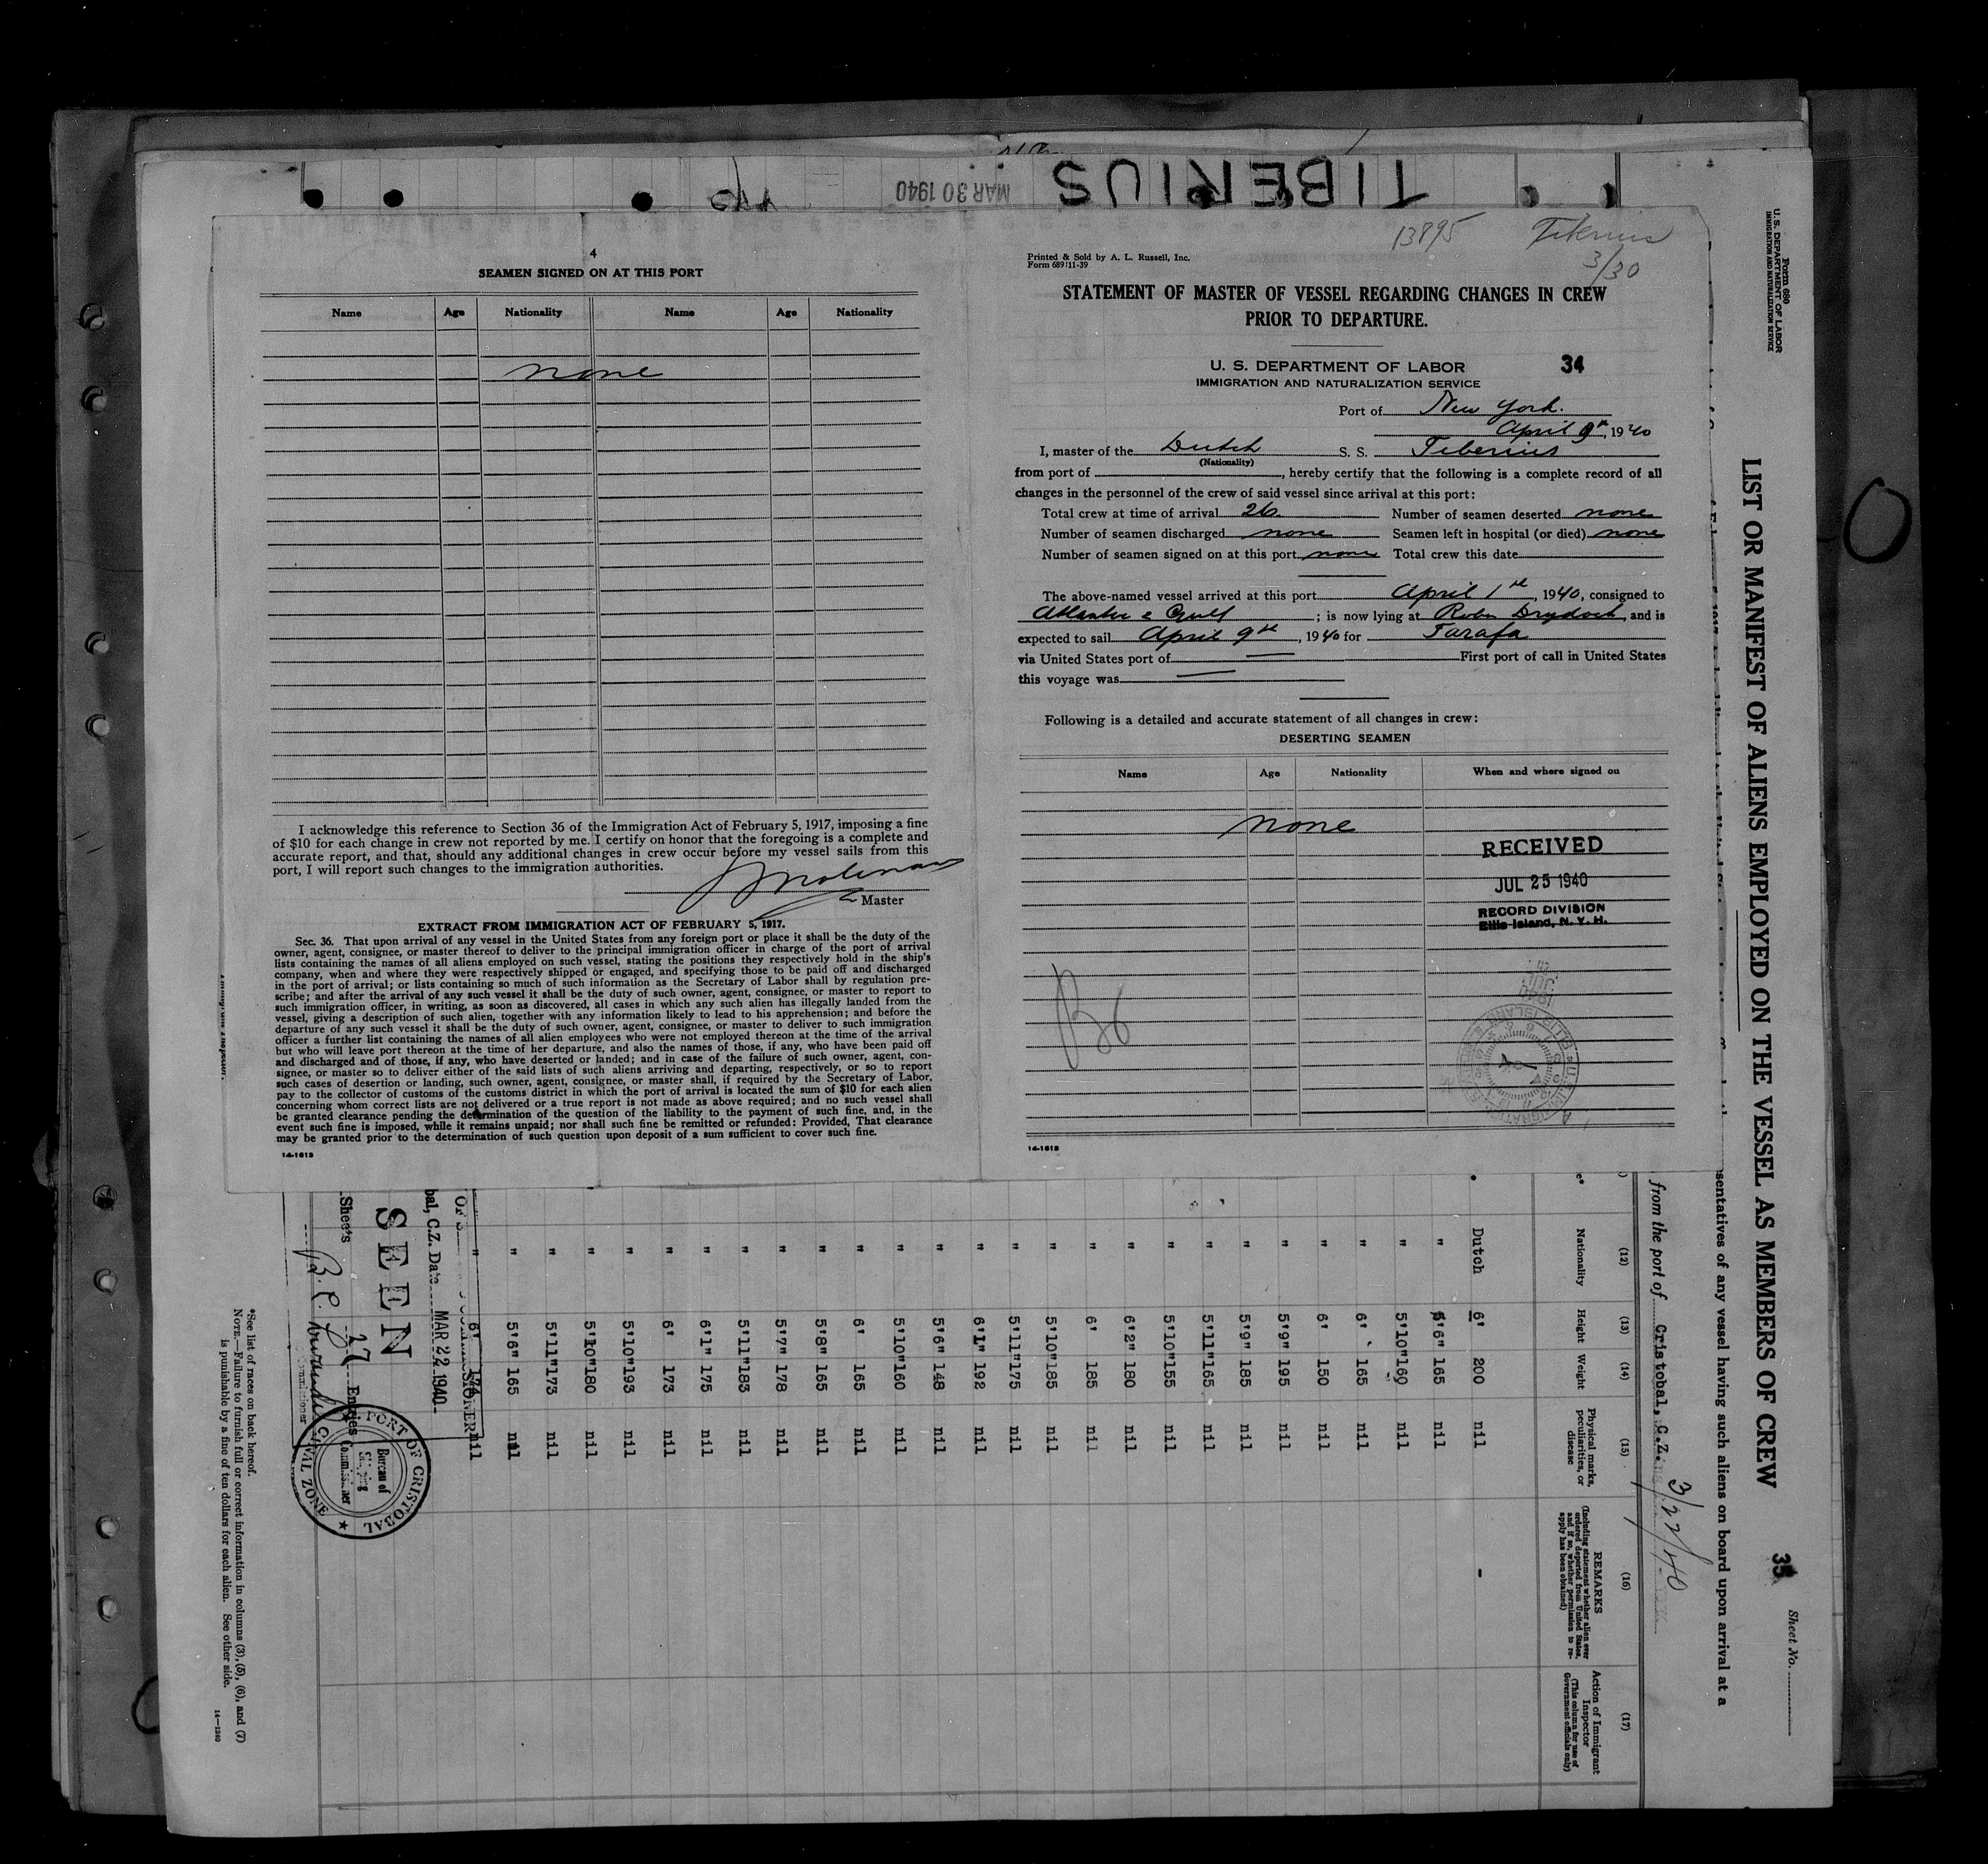 TIBERIUS
MAR 30 1940
4
SEAMEN SIGNED ON AT THIS PORT
Name Age Nationality Name Age Nationality
none
I acknowledge this reference to Section 36 of the Immigration Act of February 5, 1917, imposing a fine
of $10 for each change in crew not reported by me. I certify on honor that the foregoing is a complete and
accurate report, and that, should any additional changes in crew occur before my vessel sails from this
port, I will report such changes to the immigration authorities.
Master
EXTRACT FROM IMMIGRATION ACT OF FEBRUARY 5, 1917.
Sec. 36. That upon arrival of any vessel in the United States from any foreign port or place it shall be the duty of the
owner, agent, consignee, or master thereof to deliver to the principal immigration officer in charge of the port of arrival
lists containing the names of all aliens employed on such vessel, stating the positions they respectively hold in the ship's
company, when and where they were respectively shipped or engaged, and specifying those to be paid off and discharged
in the port of arrival; or lists containing so much of such information as the Secretary of Labor shall by regulation pre-
scribe; and after the arrival of any such vessel it shall be the duty of such owner, agent, consignee, or master to report to
such immigration officer, in writing, as soon as discovered, all cases in which any such alien has illegally landed from the
vessel, giving a description of such alien, together with any information likely to lead to his apprehension; and before the
departure of any such vessel it shall be the duty of such owner, agent, consignee, or master to deliver to such immigration
officer a further list containing the names of all alien employees who were not employed thereon at the time of the arrival
but who will leave port thereon at the time of her departure, and also the names of those, if any, who have been paid off
and discharged and of those, if any, who have deserted or landed; and in case of the failure of such owner, agent, con-
signee, or master so to deliver either of the said lists of such aliens arriving and departing, respectively, or so to report
such cases of desertion or landing, such owner, agent, consignee, or master shall, if required by the Secretary of Labor,
pay to the collector of customs of the customs district in which the port of arrival is located the sum of $10 for each alien
concerning whom correct lists are not delivered or a true report is not made as above required; and no such vessel shall
be granted clearance pending the determination of the question of the liability to the payment of such fine, and, in the
event such fine is imposed, while it remains unpaid; nor shall such fine be remitted or refunded: Provided, That clearance
may be granted prior to the determination of such question upon deposit of a sum sufficient to cover such fine.
14-1613
13895 Tiberius
3/30
Printed & Sold by A. L. Russell, Inc.
Form 689:11-39
STATEMENT OF MASTER OF VESSEL REGARDING CHANGES IN CREW
PRIOR TO DEPARTURE.
U. S. DEPARTMENT OF LABOR 34
IMMIGRATION AND NATURALIZATION SERVICE
Port of New York.
April 9th, 1940
I, master of the Dutch S. S. Tiberius
(Nationality)
from port of , hereby certify that the following is a complete record of all
changes in the personnel of the crew of said vessel since arrival at this port:
Total crew at time of arrival 26 Number of seamen deserted none
Number of seamen discharged none Seamen left in hospital (or died) none
Number of seamen signed on at this port none Total crew this date
The above-named vessel arrived at this port April 1st, 1940, consigned to
Atlantic & Gulf ; is now lying at Robin Drydock, and is
expected to sail April 9th, 1940 for Tarafa
via United States port of — First port of call in United States
this voyage was —
Following is a detailed and accurate statement of all changes in crew:
DESERTING SEAMEN
Name Age Nationality When and where signed on
none
RECEIVED
JUL 25 1940
RECORD DIVISION
Ellis Island, N. Y. H.
B6
14-1613
Form 680
U. S. DEPARTMENT OF LABOR
IMMIGRATION AND NATURALIZATION SERVICE
LIST OR MANIFEST OF ALIENS EMPLOYED ON THE VESSEL AS MEMBERS OF CREW
35
Sheet No.
sentatives of any vessel having such aliens on board upon arrival at a
from the port of Cristobal, C.Z. 3/22/40
(12) (13) (14) (15) (16) (17)
Nationality Height Weight Physical marks, peculiarities, or disease
REMARKS
(Including statement whether alien ever ordered deported from United States, and if so, whether permission to re-apply has been obtained)
Action of Immigrant Inspector
(This column for use of Government officials only)
Dutch 6' 200 nil -
" 5'6" 165 nil
" 5'10" 160 nil
" 6' 165 nil
" 6' 150 nil
" 5'9" 195 nil
" 5'9" 185 nil
" 5'11" 165 nil
" 5'10" 155 nil
" 6'2" 180 nil
" 6' 185 nil
" 5'10" 185 nil
" 5'11" 175 nil
" 6'1" 192 nil
" 5'6" 148 nil
" 5'10" 160 nil
" 6' 165 nil
" 5'8" 165 nil
" 5'7" 178 nil
" 5'11" 183 nil
" 6'1" 175 nil
" 6' 173 nil
" 5'10" 193 nil
" 5'10" 180 nil
" 5'11" 173 nil
" 5'6" 165 nil
" 6' nil
bal, C.Z. Date MAR 22 1940
SEEN
Sheets 27 Entries
PORT OF CRISTOBAL
CANAL ZONE
Bureau of
Shipping
Commissioner
*See list of races on back hereof.
NOTE.—Failure to furnish full or correct information in columns (3), (5), (6), and (7)
is punishable by a fine of ten dollars for each alien. See other side.
14—1240